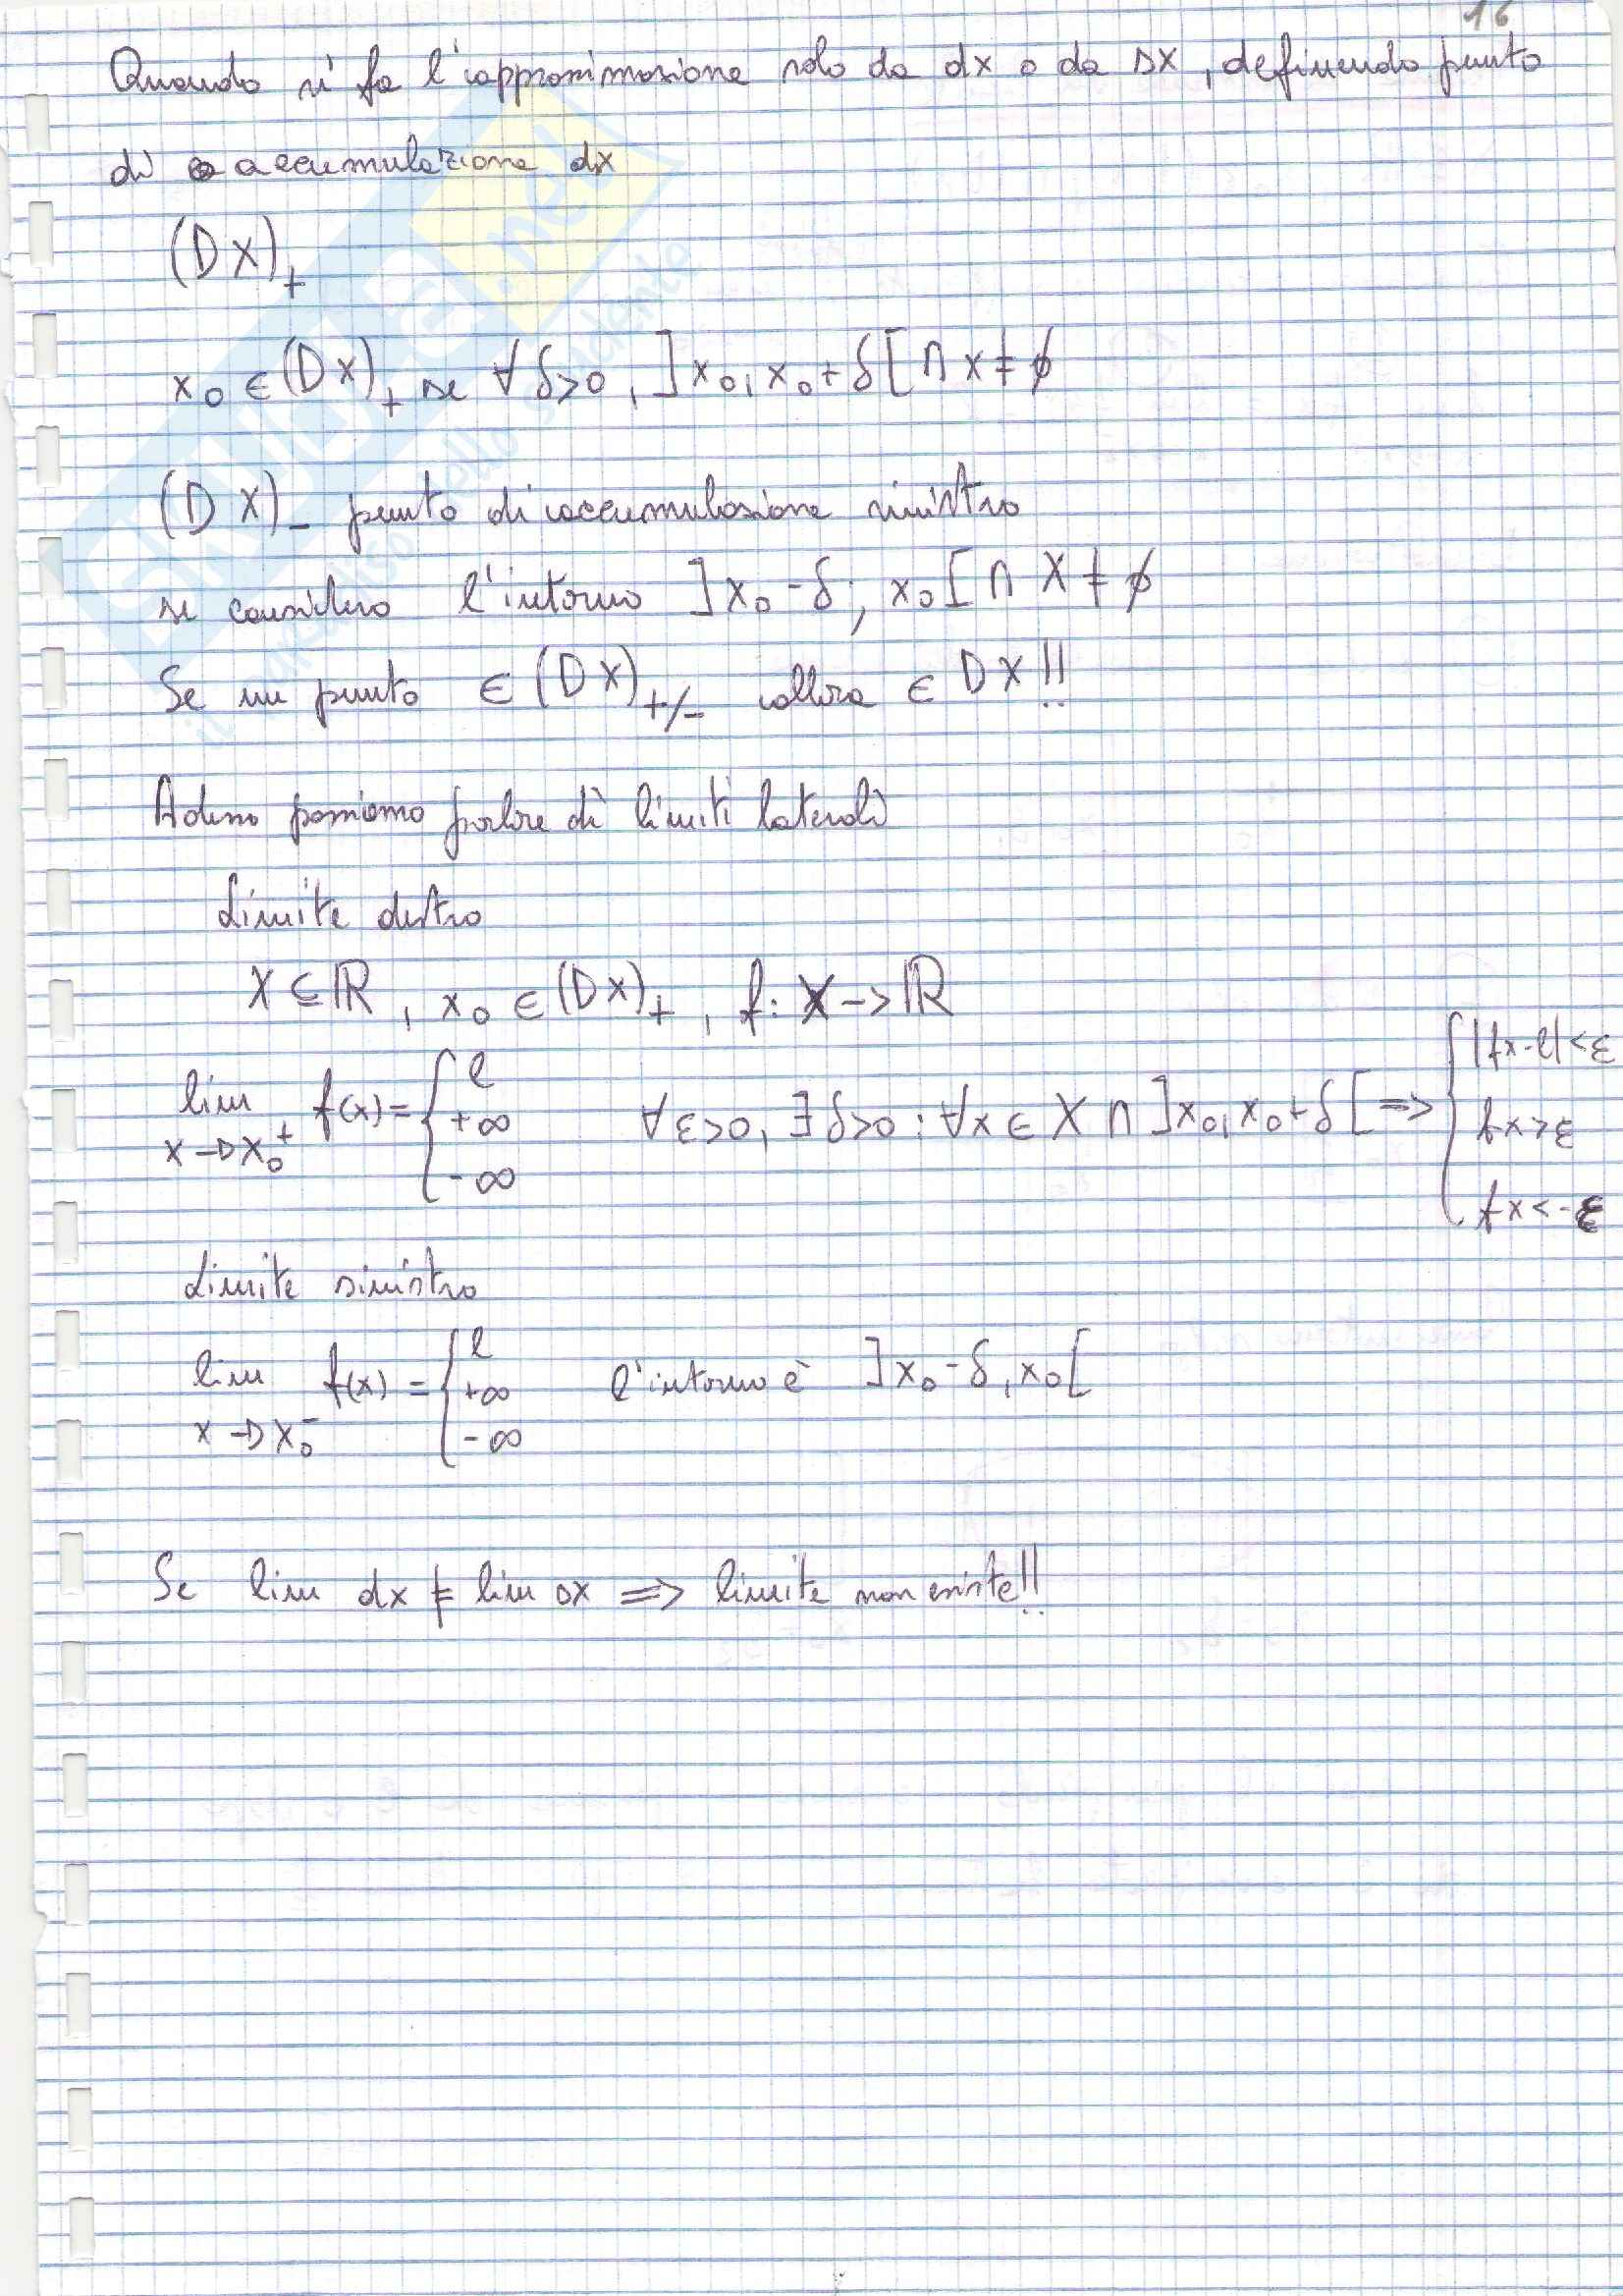 16
Quando si fa l'approssimazione solo da dx o da sx, definendo punto
di accumulazione dx
(DX)₊
x₀ ∈ (DX)₊ se ∀δ>0, ]x₀, x₀+δ[ ∩ X ≠ ∅
(DX)₋ punto di accumulazione sinistro
se considero l'intorno ]x₀-δ; x₀[ ∩ X ≠ ∅
Se un punto ∈ (DX)₊/₋ allora ∈ DX!!
Adesso possiamo parlare di limiti laterali
Limite destro
X ⊆ ℝ, x₀ ∈ (DX)₊, f: X -> ℝ
lim x→x₀⁺ f(x) = { l +∞ -∞ ∀ε>0, ∃δ>0 : ∀x ∈ X ∩ ]x₀, x₀+δ[ => { |fx-l|<ε fx>ε fx<-ε
Limite sinistro
lim x→x₀⁻ f(x) = { l +∞ -∞ l'intorno è ]x₀-δ, x₀[
Se lim dx ≠ lim sx => limite non esiste!!